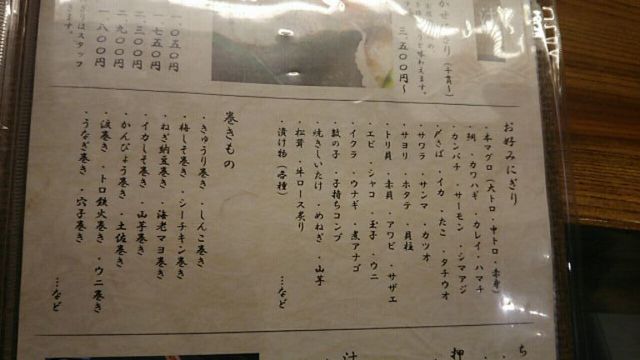 一、〇五〇円
一、七五〇円
二、三〇〇円
二、九〇〇円
一、八〇〇円
はスタッフ
（十貫〜）
を味わえます。
三、五〇〇円〜
お好みにぎり
・本マグロ（大トロ・中トロ・赤身）
・鯛・カワハギ・カレイ・ハマチ
・カンパチ・サーモン・シマアジ
・〆さば・イカ・たこ・タチウオ
・サワラ・サンマ・カツオ
・サヨリ・ホタテ・貝柱
・トリ貝・赤貝・アワビ・サザエ
・エビ・シャコ・玉子・ウニ
・イクラ・ウナギ・煮アナゴ
・数の子・子持ちコンブ
・焼きしいたけ・めねぎ・山芋
・松茸・牛ロース炙り
・漬け物（各種）
…など
巻きもの
・きゅうり巻き・しんこ巻き
・梅しそ巻き・シーチキン巻き
・ねぎ納豆巻き・海老マヨ巻き
・イカしそ巻き・山芋巻き
・かんぴょう巻き・土佐巻き
・涙巻き・トロ鉄火巻き・ウニ巻き
・うなぎ巻き・穴子巻き
…など
ち
押
汁